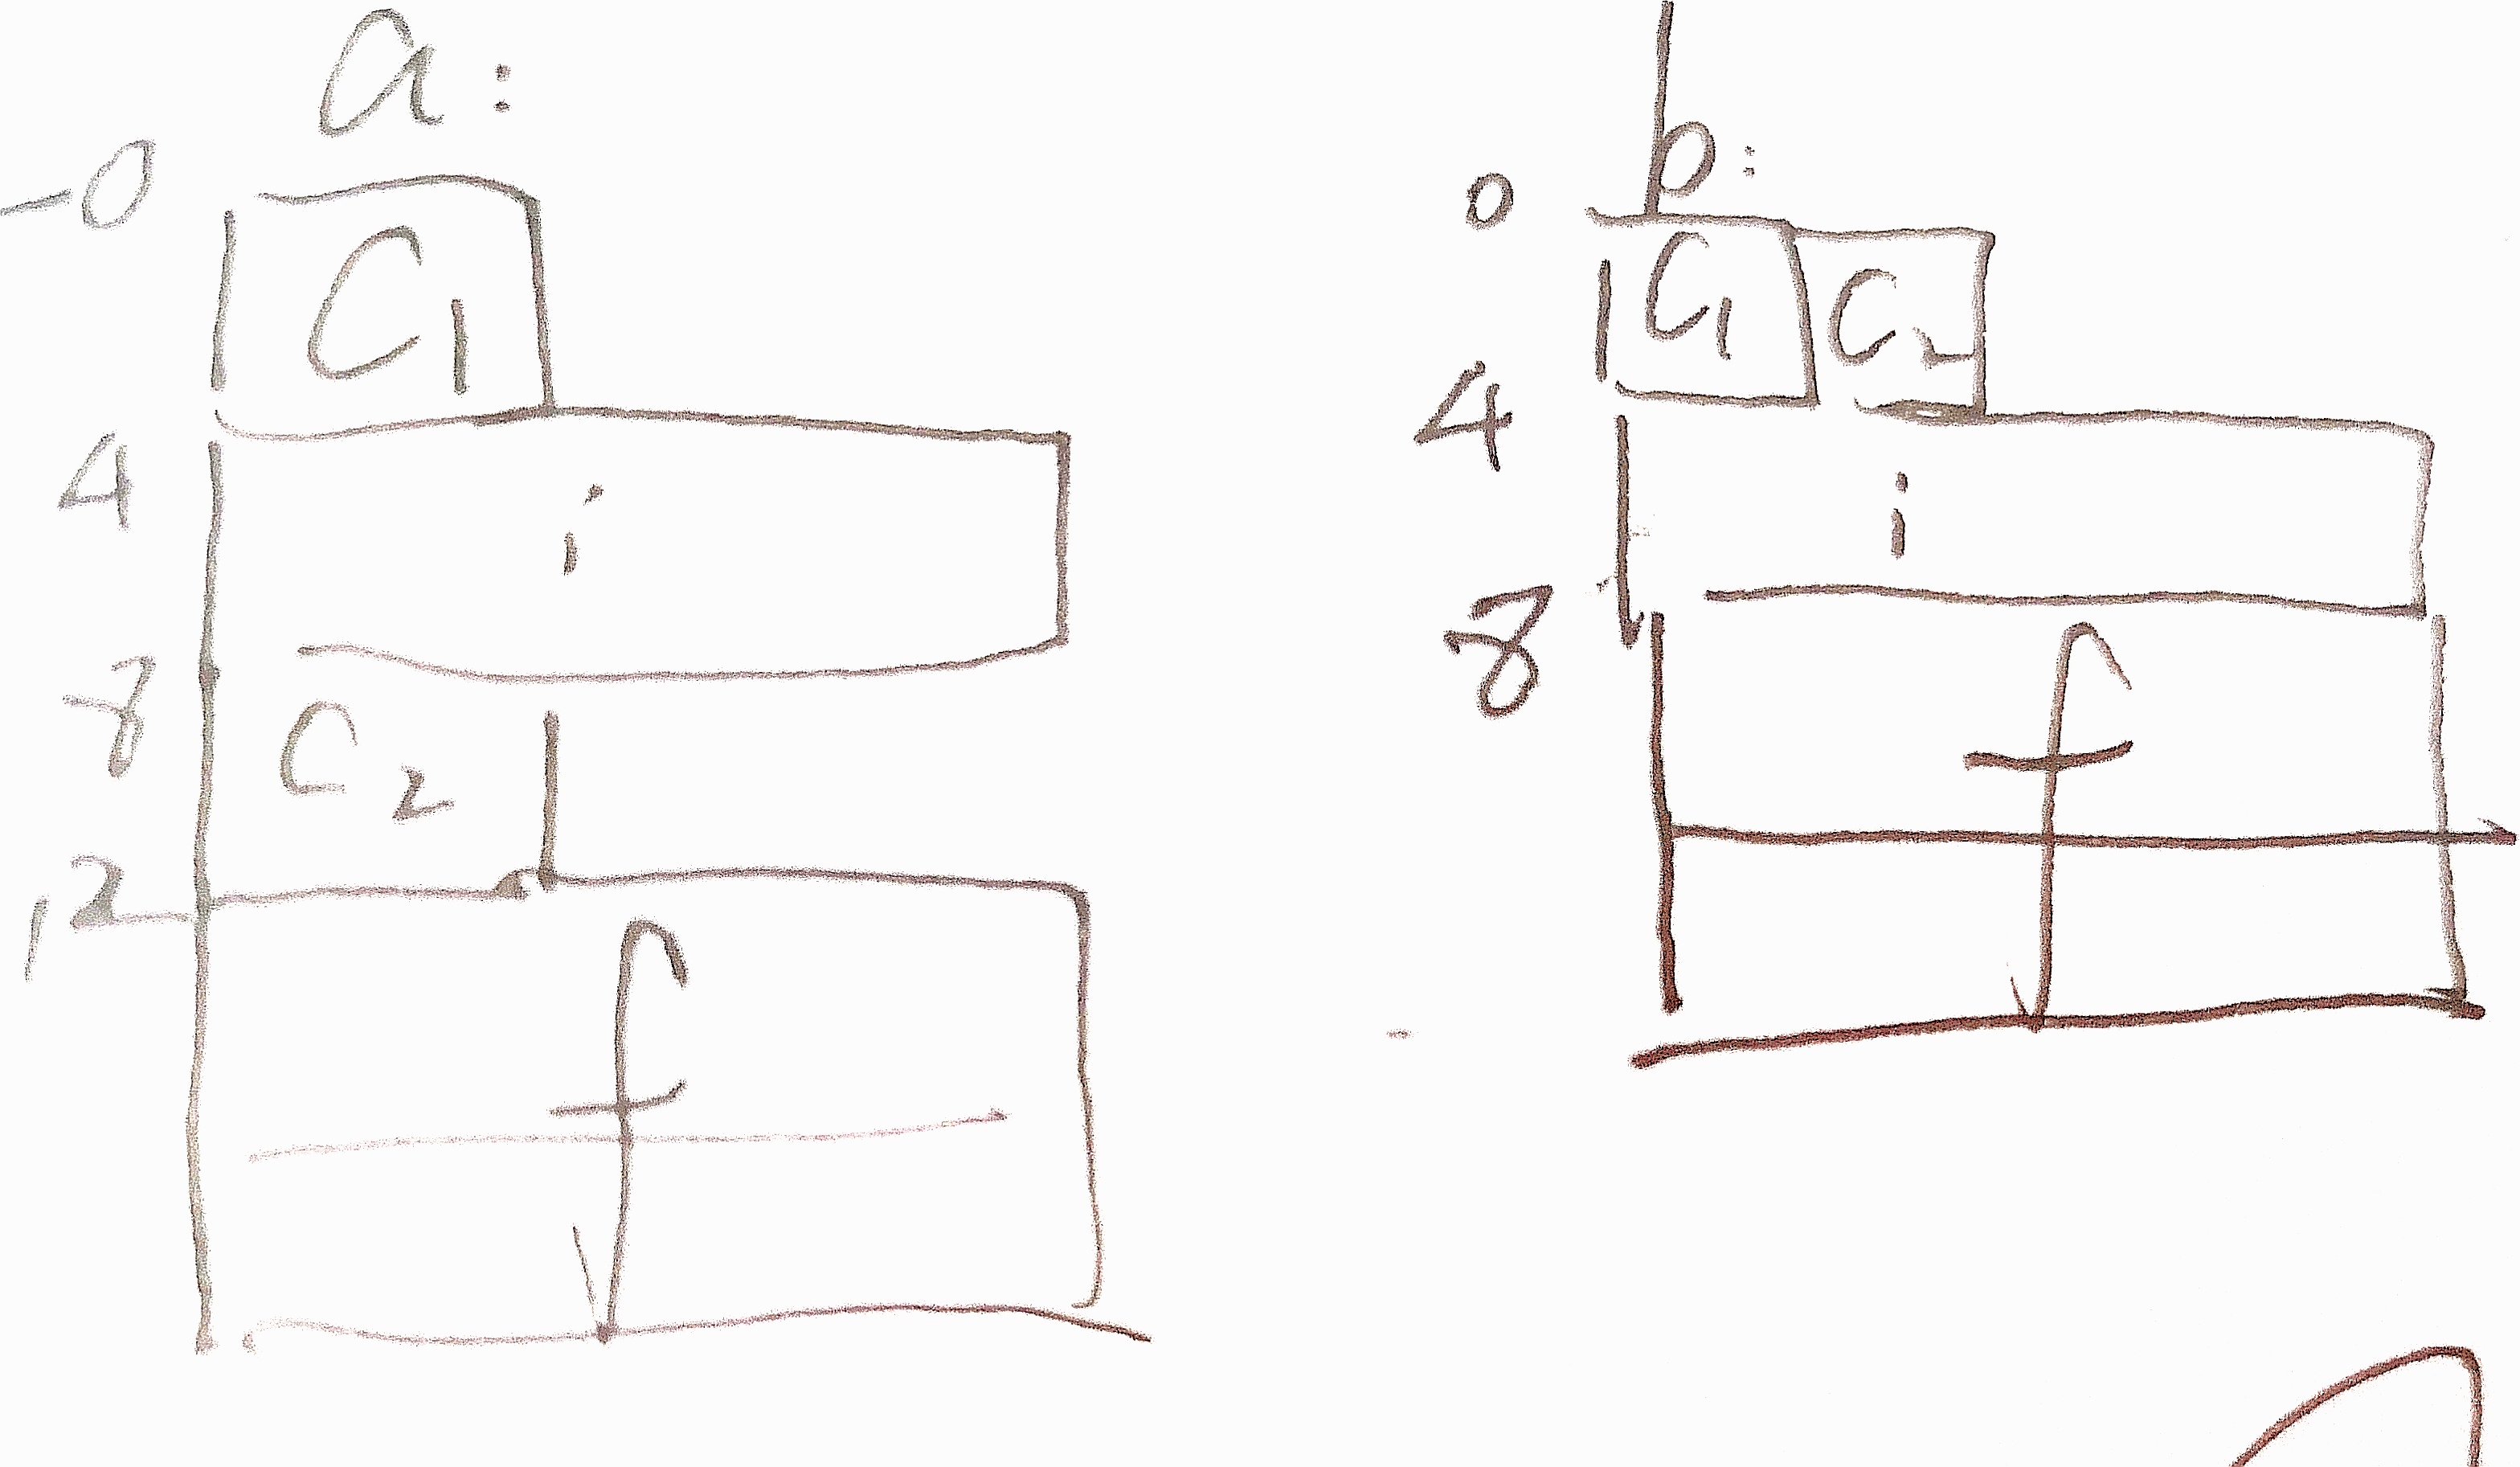 a:
-0
C1
4
i
8
C2
12
f
b:
0
C1 C2
4
i
8
f